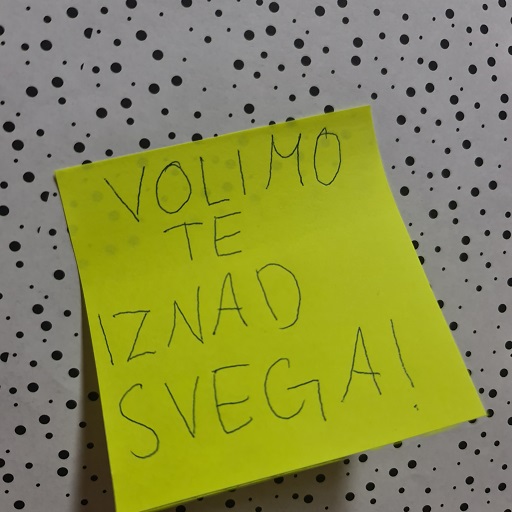 VOLIMO
TE
IZNAD
SVEGA!